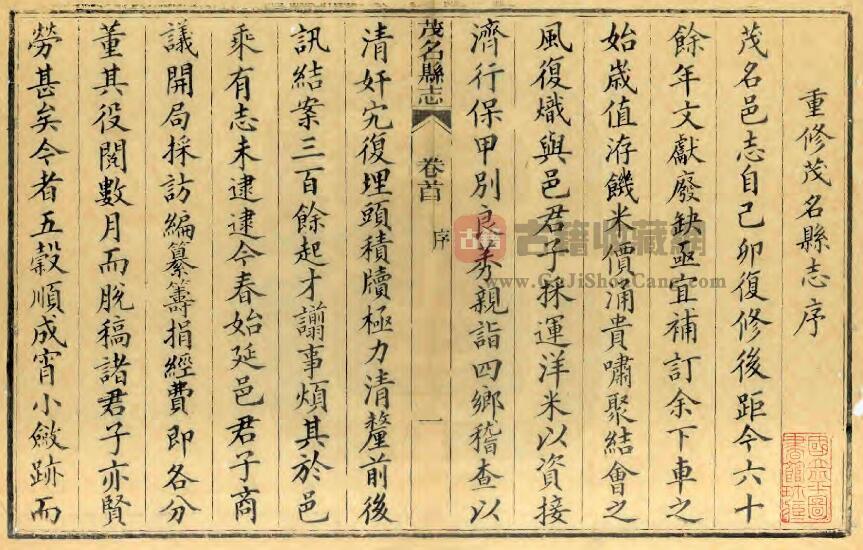 重修茂名縣志序
茂名邑志自己卯復修後距今六十
餘年文獻廢缺亟宜補訂余下車之
始歲值洊饑米價涌貴嘯聚結會之
風復熾與邑君子採運洋米以資接
濟行保甲別良莠親詣四鄉稽查以
茂名縣志 卷首 序 一
清奸宄復埋頭積牘極力清釐前後
訊結案三百餘起才謭事煩其於邑
乘有志未逮逮今春始延邑君子商
議開局採訪編纂籌捐經費即各分
董其役閱數月而脫稿諸君子亦賢
勞甚矣今者五穀順成宵小斂跡而
古籍 古籍收藏網
www.GuJiShouCang.com